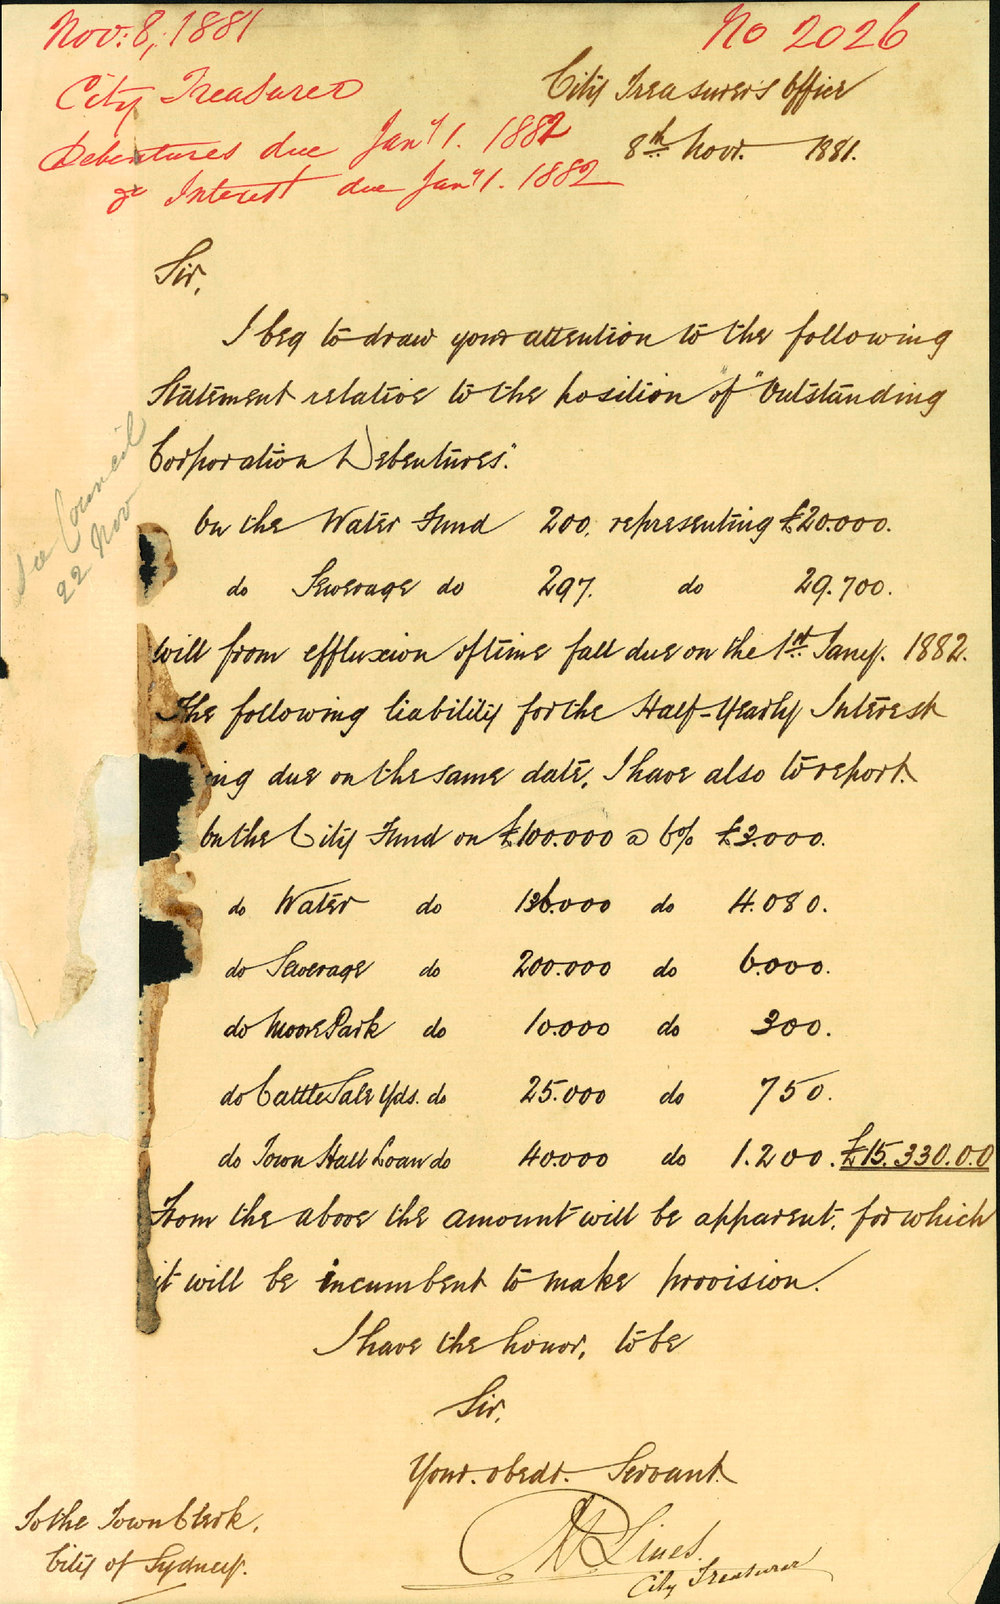 Nov: 8, 1881
No 2026
City Treasurer
Debentures due Jany 1. 1882
& Interest due Jany 1. 1882
City Treasurer's Office
8th Novr. 1881.
Sir,
I beg to draw your attention to the following
Statement relative to the position of "Outstanding
Corporation Debentures".
On the Water Fund 200. representing £20.000.
do Sewerage do 297. do 29.700.
will from effluxion of time fall due on the 1st. Jany. 1882.
The following liability for the Half-Yearly Interest
ing due on the same date, I have also to report.
On the City Fund on £100.000 @ 6% £3.000.
do Water do 136.000 do 4.080.
do Sewerage do 200.000 do 6.000.
do Moore Park do 10.000 do 300.
do Cattle Sale Yds. do 25.000 do 750.
do Town Hall Loan do 40.000 do 1.200. £15.330.0.0
From the above the amount will be apparent, for which
it will be incumbent to make provision.
I have the honor, to be
Sir,
Your. obedt. Servant.
Lines.
City Treasurer
To the Town Clerk,
City of Sydney.
Council
22 Nov